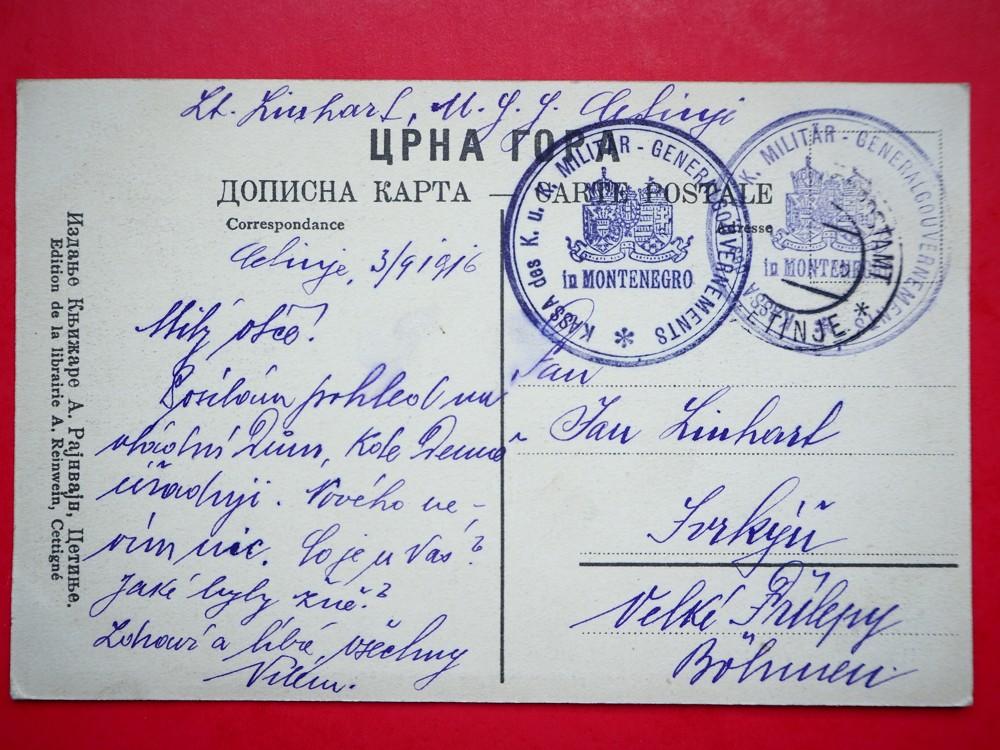 Lt. Linhart, M. G. G. Cetinje
ЦРНА ГОРА
ДОПИСНА КАРТА — CARTE POSTALE
Correspondance
Adresse
KASSA des K. u. K. MILITÄR - GENERALGOUVERNEMENTS *
in MONTENEGRO
K. MILITÄR - GENERALGOUVERNEMENTS
in MONTENEGRO
POSTAMT
TINJE *
Издање Књижаре А. Рајнвајн, Цетиње.
Edition de la librairie A. Reinwein, Cettigné
Cetinje, 3/9 1916
Milý otče!
Posílám pohled na
vládní Dům, kde Denně
úřaduji. Nového ne-
vím nic. Co je u Vás?
Jaké byly žně?
Zdraví a líbá všechny
Vilém.
Pan
Jan Linhart
Velké Přílepy
Böhmen